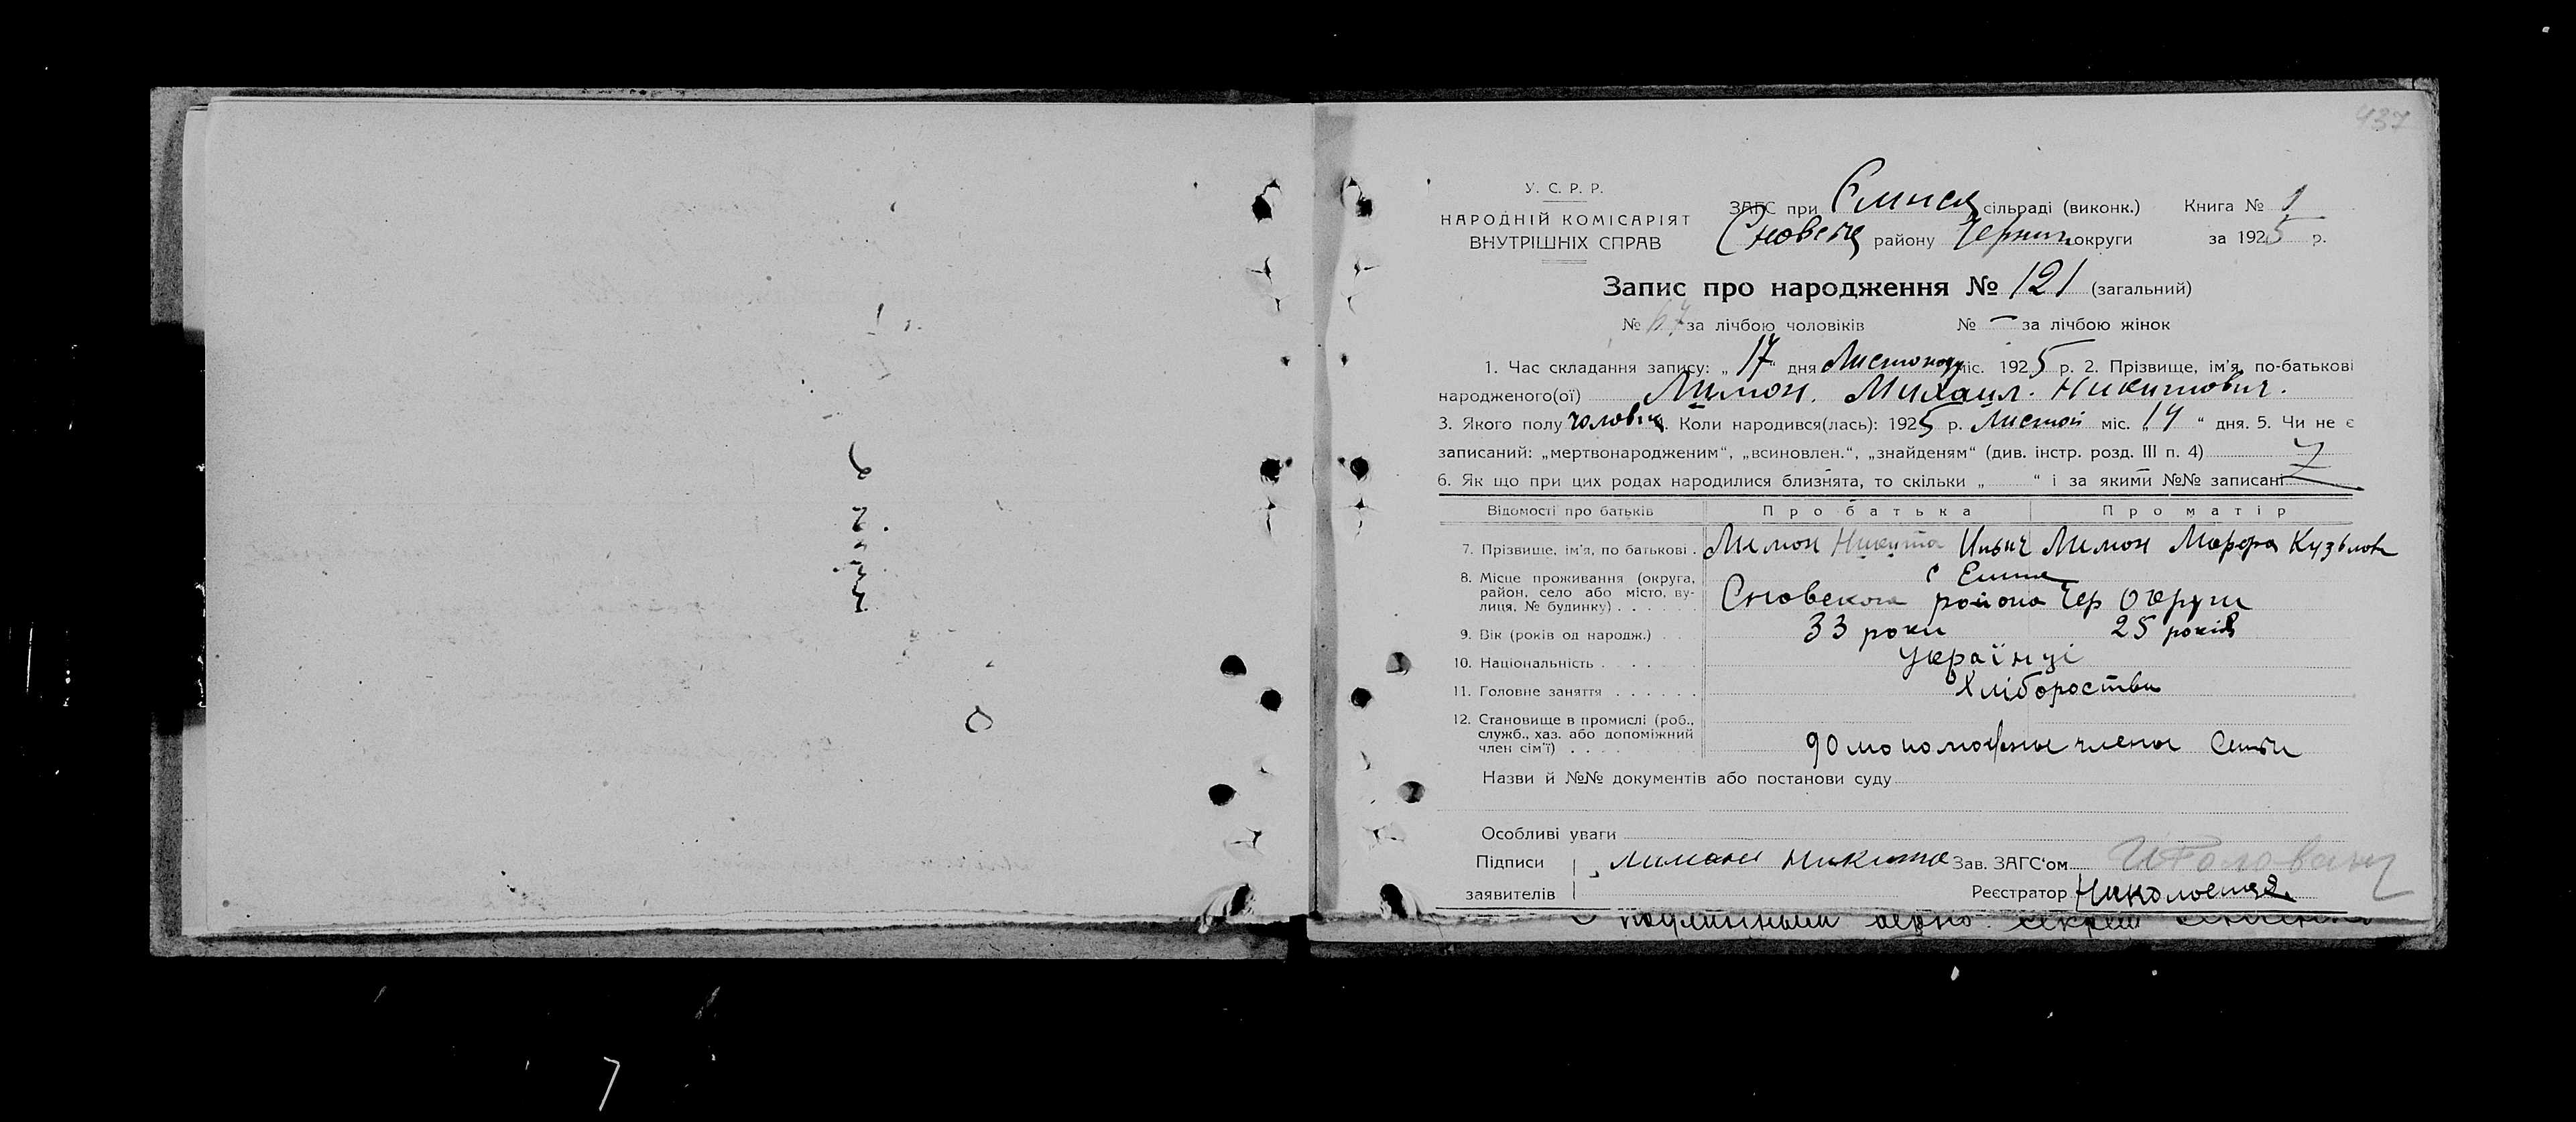 437
У. С. Р. Р.
НАРОДНІЙ КОМІСАРІЯТ
ВНУТРІШНІХ СПРАВ
ЗАГС при сільраді (виконк.) Книга № 1
району Черниг округи за 1925 р.
Запис про народження № 121 (загальний)
№ 67 за лічбою чоловіків № — за лічбою жінок
1. Час складання запису: „17“ дня Листопаду міс. 1925 р. 2. Прізвище, ім'я, по-батькові
народженого(ої) Лимон. Михаил. Никитович.
3. Якого полу Коли народився(лась): 1925 р. Листоп міс. „14“ дня. 5. Чи не є
записаний: „мертвонародженим“, „всиновлен.“, „знайденям“ (див. інстр. розд. III п. 4)
6. Як що при цих родах народилися близнята, то скільки „ “ і за якими №№ записані
Відомості про батьків Про батька Про матір
7. Прізвище, ім'я, по батькові . Лимон Никита Ильич Лимон Марфа Кузьмов
8. Місце проживання (округа, район, село або місто, вулиця, № будинку) . . . . . с
Сновского района Чер Округи
9. Вік (років од народж.) . . 33 роки 25 років
10. Національність . . . . українці
11. Головне заняття . . . . . . Хлібороства
12. Становище в промислі (роб., служб., хаз. або допоміжний член сім'ї) . . . . члены
Назви й №№ документів або постанови суду
Особливі уваги
Підписи Лимон Никита Зав. ЗАГС'ом
заявителів Реєстратор